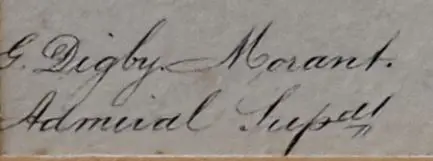 G. Digby Morant.
Admiral Supdt